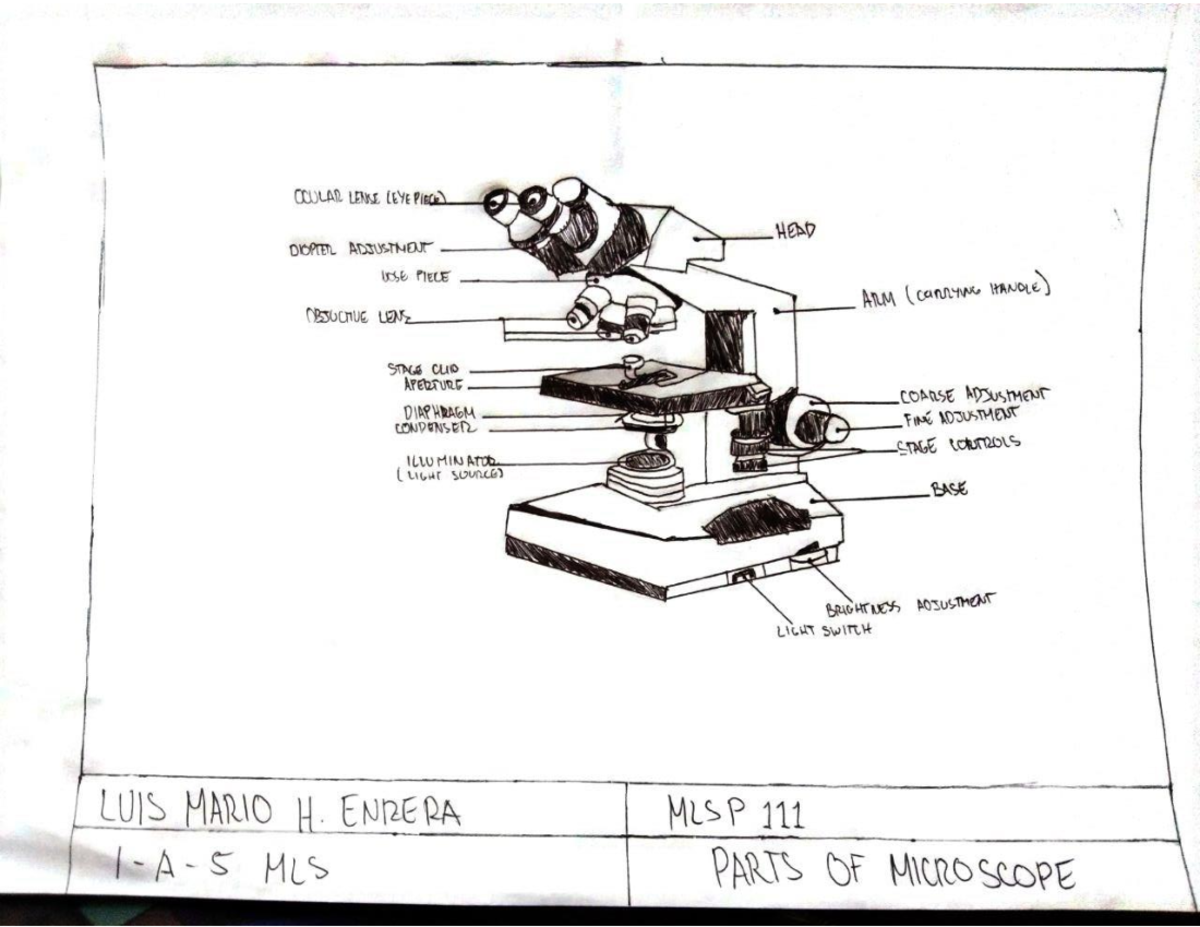 OCULAR LENSE (EYE PIECE)
DIOPTER ADJUSTMENT
NOSE PIECE
OBJUCTIVE LENS
STAGE CLIP
APERTURE
DIAPHRAGM
CONDENSER
ILLUMINATOR
(LIGHT SOURCE)
HEAD
ARM (CARRYING HANDLE)
COARSE ADJUSTMENT
FINE ADJUSTMENT
STAGE CONTROLS
BASE
BRIGHTNESS ADJUSTMENT
LIGHT SWITCH
LUIS MARIO H. ENRERA
MLSP 111
1-A-5 MLS
PARTS OF MICROSCOPE